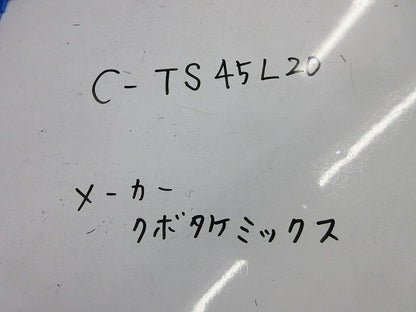 C-TS45L20
メーカー
クボタケミックス